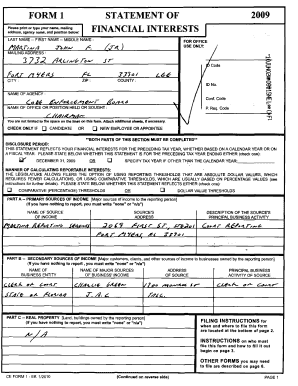 FORM 1 STATEMENT OF 2009
Please print or type your name, mailing address, agency name, and position below: FINANCIAL INTERESTS
LAST NAME - FIRST NAME - MIDDLE NAME : FOR OFFICE USE ONLY:
MARTINA JOHN F. (JR)
MAILING ADDRESS :
3732 ARLINGTON ST
FORT MYERS FL 33901 LEE
CITY : ZIP : COUNTY :
ID Code
ID No.
Conf. Code
P. Req. Code
NAME OF AGENCY :
CODE ENFORCEMENT BOARD
NAME OF OFFICE OR POSITION HELD OR SOUGHT :
CHAIRMAN
You are not limited to the space on the lines on this form. Attach additional sheets, if necessary.
CHECK ONLY IF CANDIDATE OR NEW EMPLOYEE OR APPOINTEE
**BOTH PARTS OF THIS SECTION MUST BE COMPLETED**
DISCLOSURE PERIOD:
THIS STATEMENT REFLECTS YOUR FINANCIAL INTERESTS FOR THE PRECEDING TAX YEAR, WHETHER BASED ON A CALENDAR YEAR OR ON
A FISCAL YEAR. PLEASE STATE BELOW WHETHER THIS STATEMENT IS FOR THE PRECEDING TAX YEAR ENDING EITHER (check one):
DECEMBER 31, 2009 OR SPECIFY TAX YEAR IF OTHER THAN THE CALENDAR YEAR:
MANNER OF CALCULATING REPORTABLE INTERESTS:
THE LEGISLATURE ALLOWS FILERS THE OPTION OF USING REPORTING THRESHOLDS THAT ARE ABSOLUTE DOLLAR VALUES, WHICH
REQUIRES FEWER CALCULATIONS, OR USING COMPARATIVE THRESHOLDS, WHICH ARE USUALLY BASED ON PERCENTAGE VALUES (see
instructions for further details). PLEASE STATE BELOW WHETHER THIS STATEMENT REFLECTS EITHER (check one):
COMPARATIVE (PERCENTAGE) THRESHOLDS OR DOLLAR VALUE THRESHOLDS
PART A -- PRIMARY SOURCES OF INCOME [Major sources of income to the reporting person]
(If you have nothing to report, you must write "none" or "n/a")
NAME OF SOURCE OF INCOME SOURCE'S ADDRESS DESCRIPTION OF THE SOURCE'S PRINCIPAL BUSINESS ACTIVITY
MARTINA REPORTING SERVICES 2069 FIRST ST, COURT REPORTING
FORT MYERS, FL 33901
PART B -- SECONDARY SOURCES OF INCOME [Major customers, clients, and other sources of income to businesses owned by the reporting person]
(If you have nothing to report, you must write "none" or "n/a")
NAME OF BUSINESS ENTITY NAME OF MAJOR SOURCES OF BUSINESS' INCOME ADDRESS OF SOURCE PRINCIPAL BUSINESS ACTIVITY OF SOURCE
CLERK OF COURT CHARLIE GREEN MONROE ST CLERK OF COURT
STATE OF FLORIDA J.A.C. TALL.
PART C -- REAL PROPERTY [Land, buildings owned by the reporting person]
(If you have nothing to report, you must write "none" or "n/a")
N/A
FILING INSTRUCTIONS for
when and where to file this form are
located at the bottom of page 2.
INSTRUCTIONS on who must
file this form and how to fill it out
begin on page 3.
OTHER FORMS you may need
to file are described on page 6.
CE FORM 1 - Eff. 1/2010 (Continued on reverse side) PAGE 1